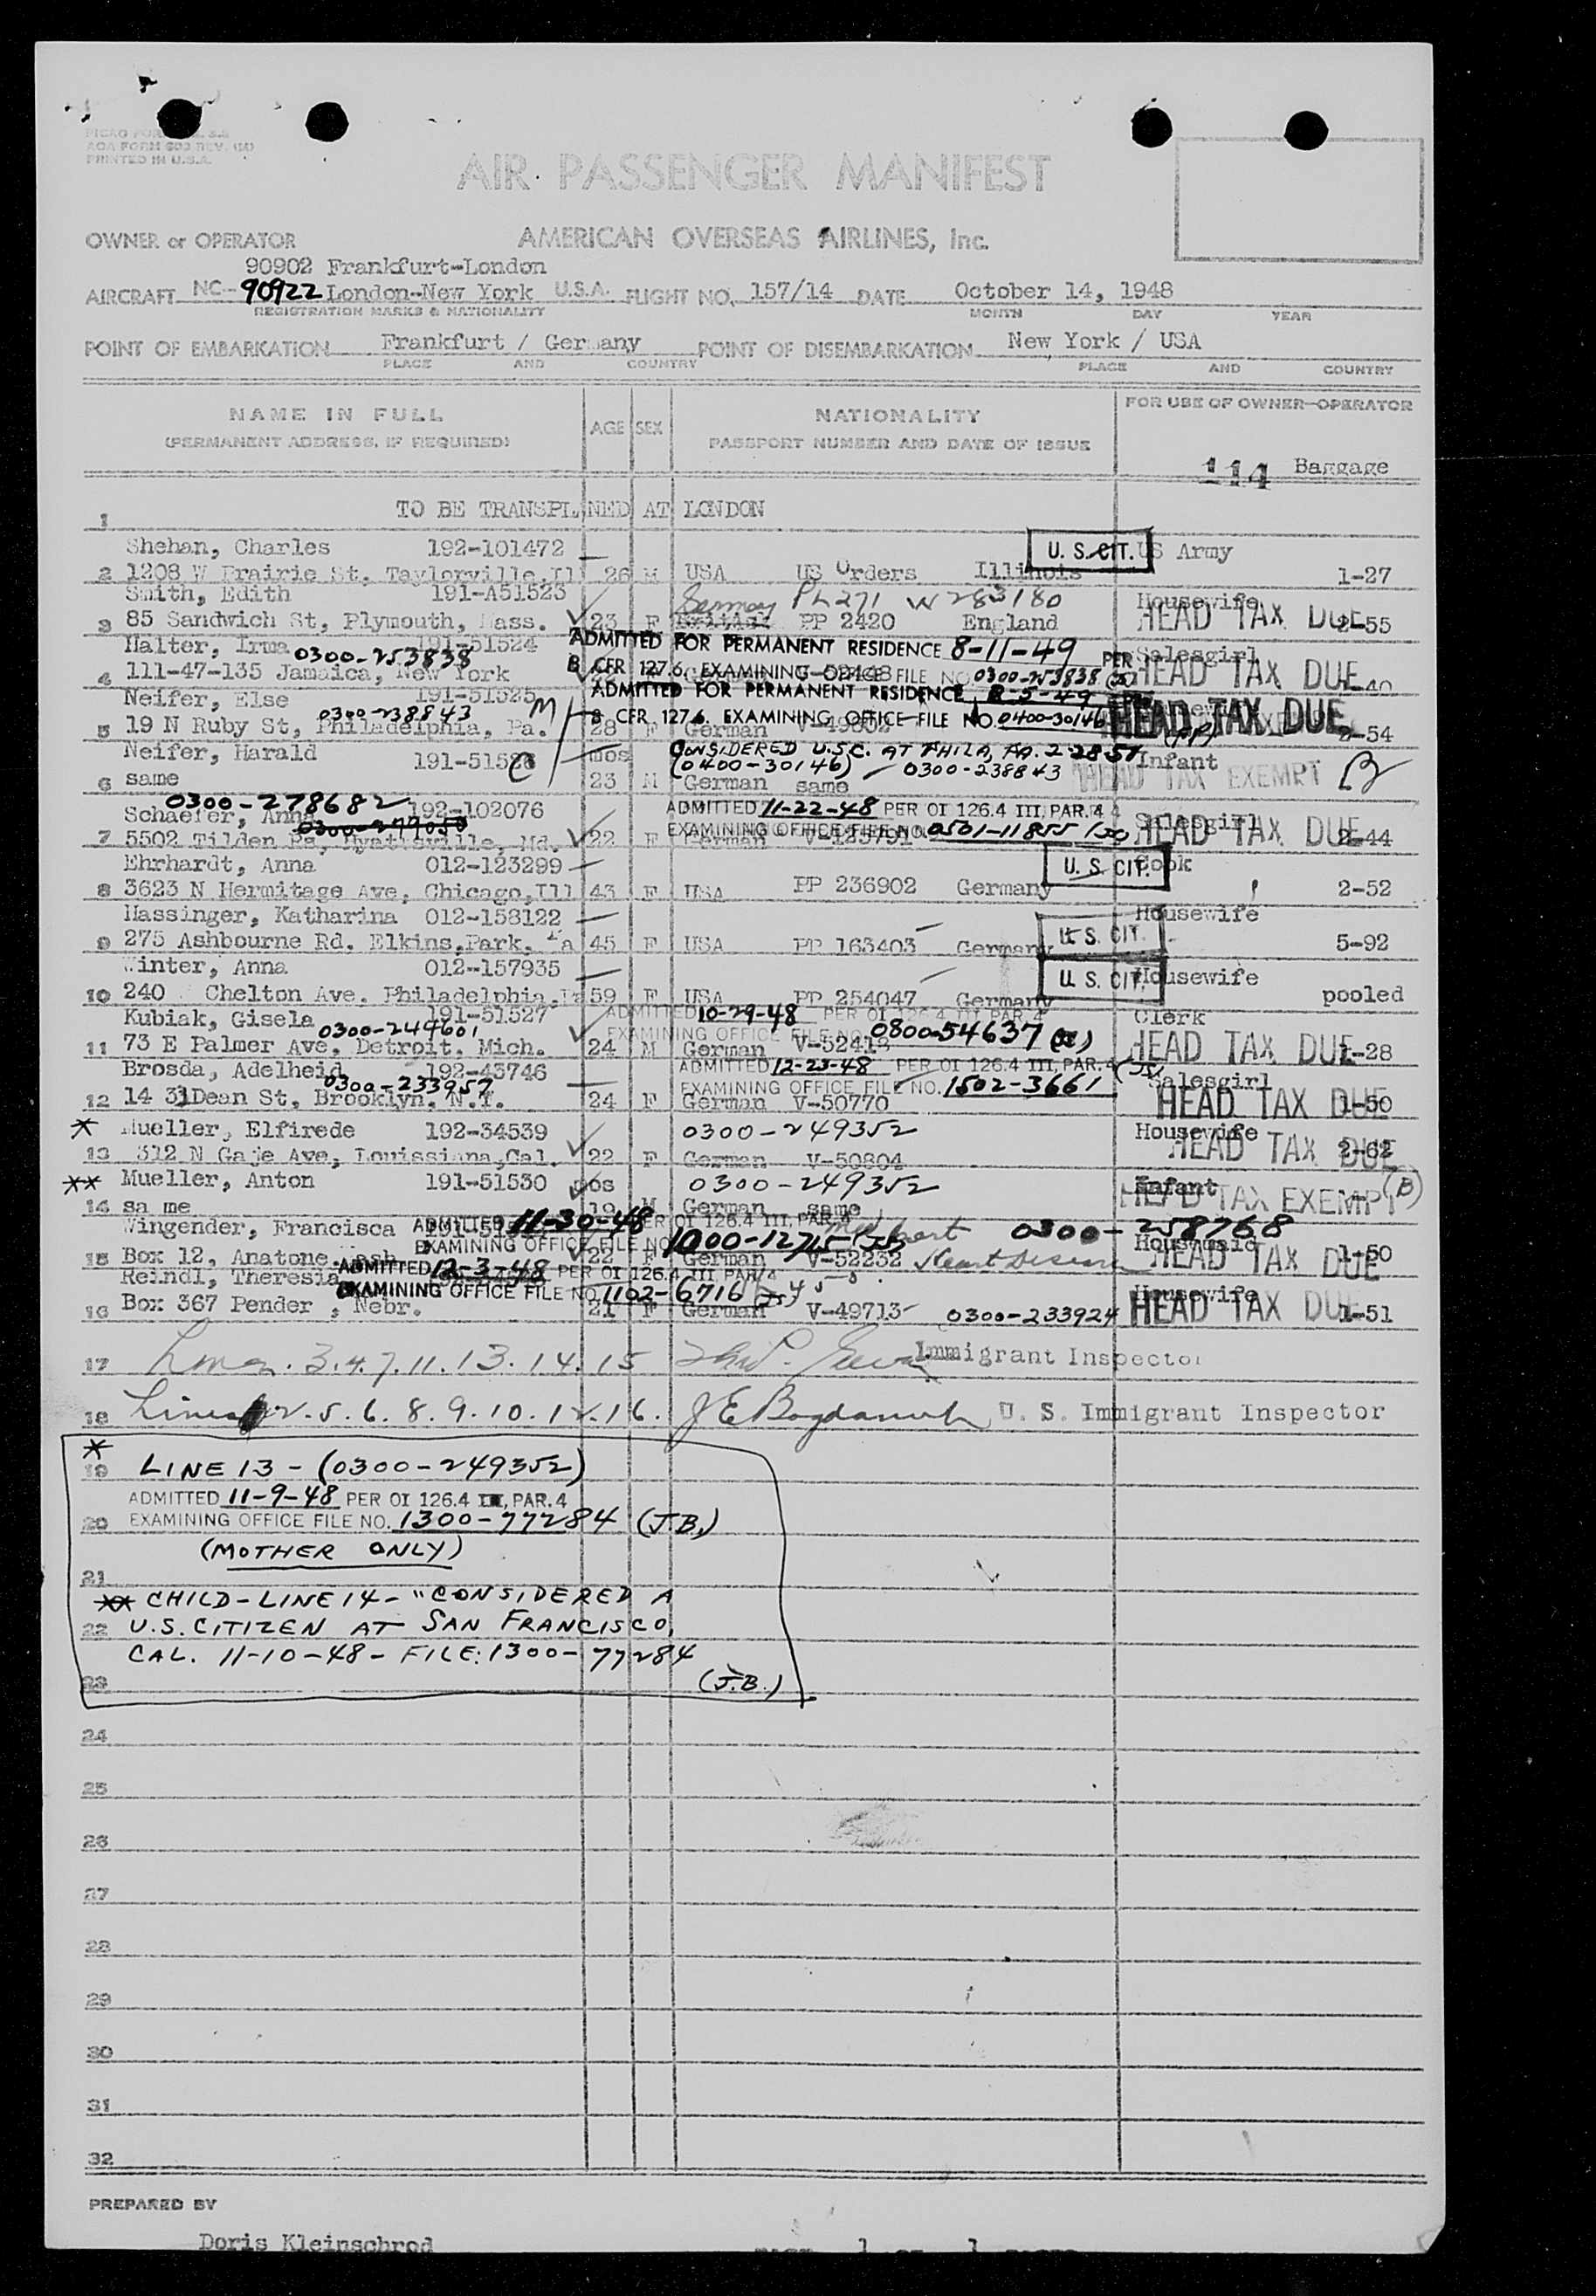 AOA FORM 603 REV. (M)
PRINTED IN U.S.A.
AIR PASSENGER MANIFEST
OWNER or OPERATOR AMERICAN OVERSEAS AIRLINES, Inc.
90902 Frankfurt-London
AIRCRAFT NC- 90922 London-New York U.S.A. FLIGHT NO. 157/14 DATE October 14, 1948
REGISTRATION MARKS & NATIONALITY MONTH DAY YEAR
POINT OF EMBARKATION Frankfurt / Germany POINT OF DISEMBARKATION New York / USA
PLACE AND COUNTRY PLACE AND COUNTRY
NAME IN FULL AGE SEX NATIONALITY FOR USE OF OWNER-OPERATOR
(PERMANENT ADDRESS, IF REQUIRED) PASSPORT NUMBER AND DATE OF ISSUE
114 Baggage
1 TO BE TRANSPL NED AT LONDON
Shehan, Charles 192-101472 U. S. CIT. US Army
2 1208 W Prairie St. Taylorville, Il 26 M USA US Orders Illinois 1-27
Smith, Edith 191-A51523 Germany PL 271 W 283180 Housewife
3 85 Sandwich St, Plymouth, Mass. 23 F British PP 2420 England HEAD TAX DUE 2-55
Halter, Irma 191-51524 ADMITTED FOR PERMANENT RESIDENCE 8-11-49 PER Salesgirl
0300-253838
4 111-47-135 Jamaica, New York 8 CFR 127.6. EXAMINING OFFICE FILE NO. 0300-253838 HEAD TAX DUE -40
Neifer, Else 191-51525 ADMITTED FOR PERMANENT RESIDENCE 2-5-49
0300-238843
5 19 N Ruby St, Philadelphia, Pa. 28 F German V-49852 8 CFR 127.6. EXAMINING OFFICE FILE NO. 0400-30146 HEAD TAX DUE 2-54
Neifer, Harald 191-51526 mos CONSIDERED U.S.C. AT PHILA, PA. 2-28-51 Infant
(0400-30146) 0300-238843
6 same 23 M German same HEAD TAX EXEMPT B
0300-278682
Schaefer, Anna 192-102076 ADMITTED 11-22-48 PER OI 126.4 III, PAR. 4 Salesgirl
0300-277050 EXAMINING OFFICE FILE NO. 0501-11855
7 5502 Tilden Rd, Hyattsville, Md. 22 F German HEAD TAX DUE 2-44
Ehrhardt, Anna 012-123299 U. S. CIT. Cook
8 3623 N Hermitage Ave, Chicago, Ill 43 F USA PP 236902 Germany 2-52
Hassinger, Katharina 012-158122 Housewife
9 275 Ashbourne Rd. Elkins, Park, Pa 45 F USA PP 163403 Germany U. S. CIT. 5-92
Winter, Anna 012-157935 U. S. CIT. Housewife
10 240 Chelton Ave. Philadelphia, Pa 59 F USA PP 254047 Germany pooled
Kubiak, Gisela 191-51527 ADMITTED 10-29-48 PER OI 126.4 III PAR. 4 Clerk
0300-244601 EXAMINING OFFICE FILE NO. 0800-54637
11 73 E Palmer Ave, Detroit, Mich. 24 M German V-52418 HEAD TAX DUE 1-28
Brosda, Adelheid 192-43746 ADMITTED 12-23-48 PER OI 126.4 III, PAR. 4 Salesgirl
0300-233957 EXAMINING OFFICE FILE NO. 1502-3661
12 14 31 Dean St, Brooklyn, N.Y. 24 F German V-50770 HEAD TAX DUE 1-50
* Mueller, Elfirede 192-34539 0300-249352 Housewife
13 312 N Gaje Ave, Louissiana, Cal. 22 F German V-50804 HEAD TAX DUE 2-62
** Mueller, Anton 191-51530 mos 0300-249352 Infant
14 sa me 19 M German same HEAD TAX EXEMPT (B)
Wingender, Francisca ADMITTED 11-30-48 PER OI 126.4 III, PAR. 4 0300-258768
EXAMINING OFFICE FILE NO. 1000-12715
15 Box 12, Anatone, Wash 22 F German V-52232 Heart Disease HEAD TAX DUE 1-50
Reindl, Theresia ADMITTED 12-3-48 PER OI 126.4 III PAR. 4 Housewife
EXAMINING OFFICE FILE NO. 1102-6716
16 Box 367 Pender, Nebr. 21 F German V-49713 0300-233924 HEAD TAX DUE 1-51
17 Lines. 3.4.7.11.13.14.15 Immigrant Inspector
18 Lines 2.5.6.8.9.10.12.16. U. S. Immigrant Inspector
*
19 LINE 13 - (0300-249352)
ADMITTED 11-9-48 PER OI 126.4 III, PAR. 4
20 EXAMINING OFFICE FILE NO. 1300-77284 (J.B.)
(MOTHER ONLY)
21
** CHILD-LINE 14- "CONSIDERED A
22 U.S. CITIZEN AT SAN FRANCISCO,
CAL. 11-10-48- FILE: 1300-77284
23 (J.B.)
24
25
26
27
28
29
30
31
32
PREPARED BY
Doris Kleinschrod